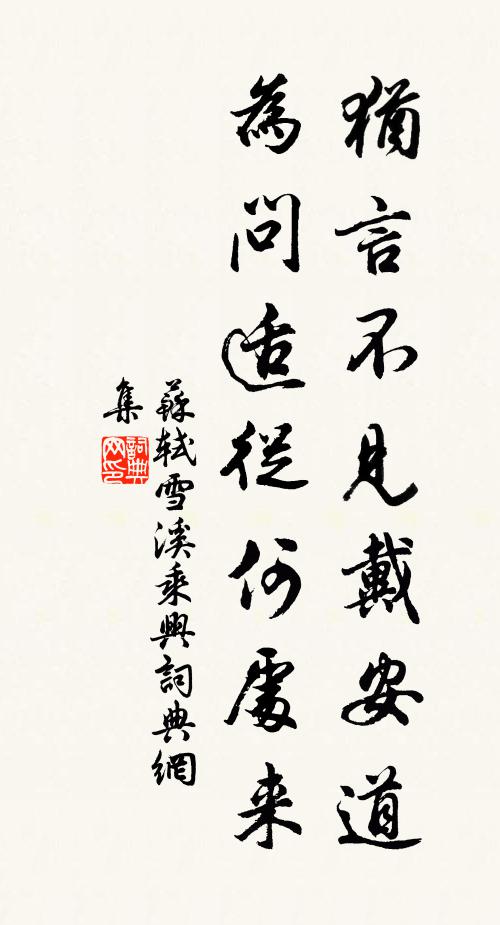 猶言不見戴安道
為問适從何處来
蘇軾雪溪乘興詞典網
集
詞典
网印